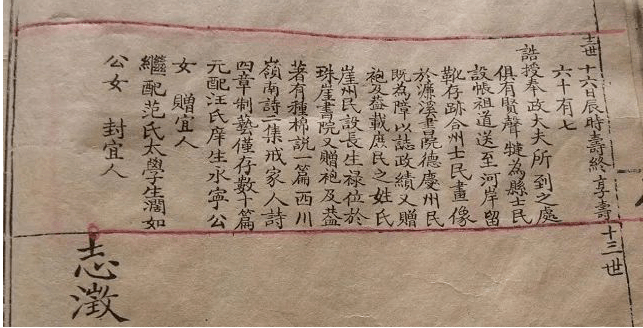 十三世
十六日辰時壽終享壽
六十有七
誥授奉政大夫所到之處
俱有賢聲犍為縣士民
設帳祖道送至河岸留
靴存跡合州士民畫像
於濂溪書院德慶州民
既為障以誌政績又贈
袍及蓋載庶民之姓氏
崖州民設長生禄位於
珠崖書院又贈袍及蓋
著有種棉說一篇西川
嶺南詩二集戒家人詩
四章制藝僅存數十篇
元配汪氏庠生永寧公
女 贈宜人
繼配范氏太學生濶如
公女 封宜人
志澂